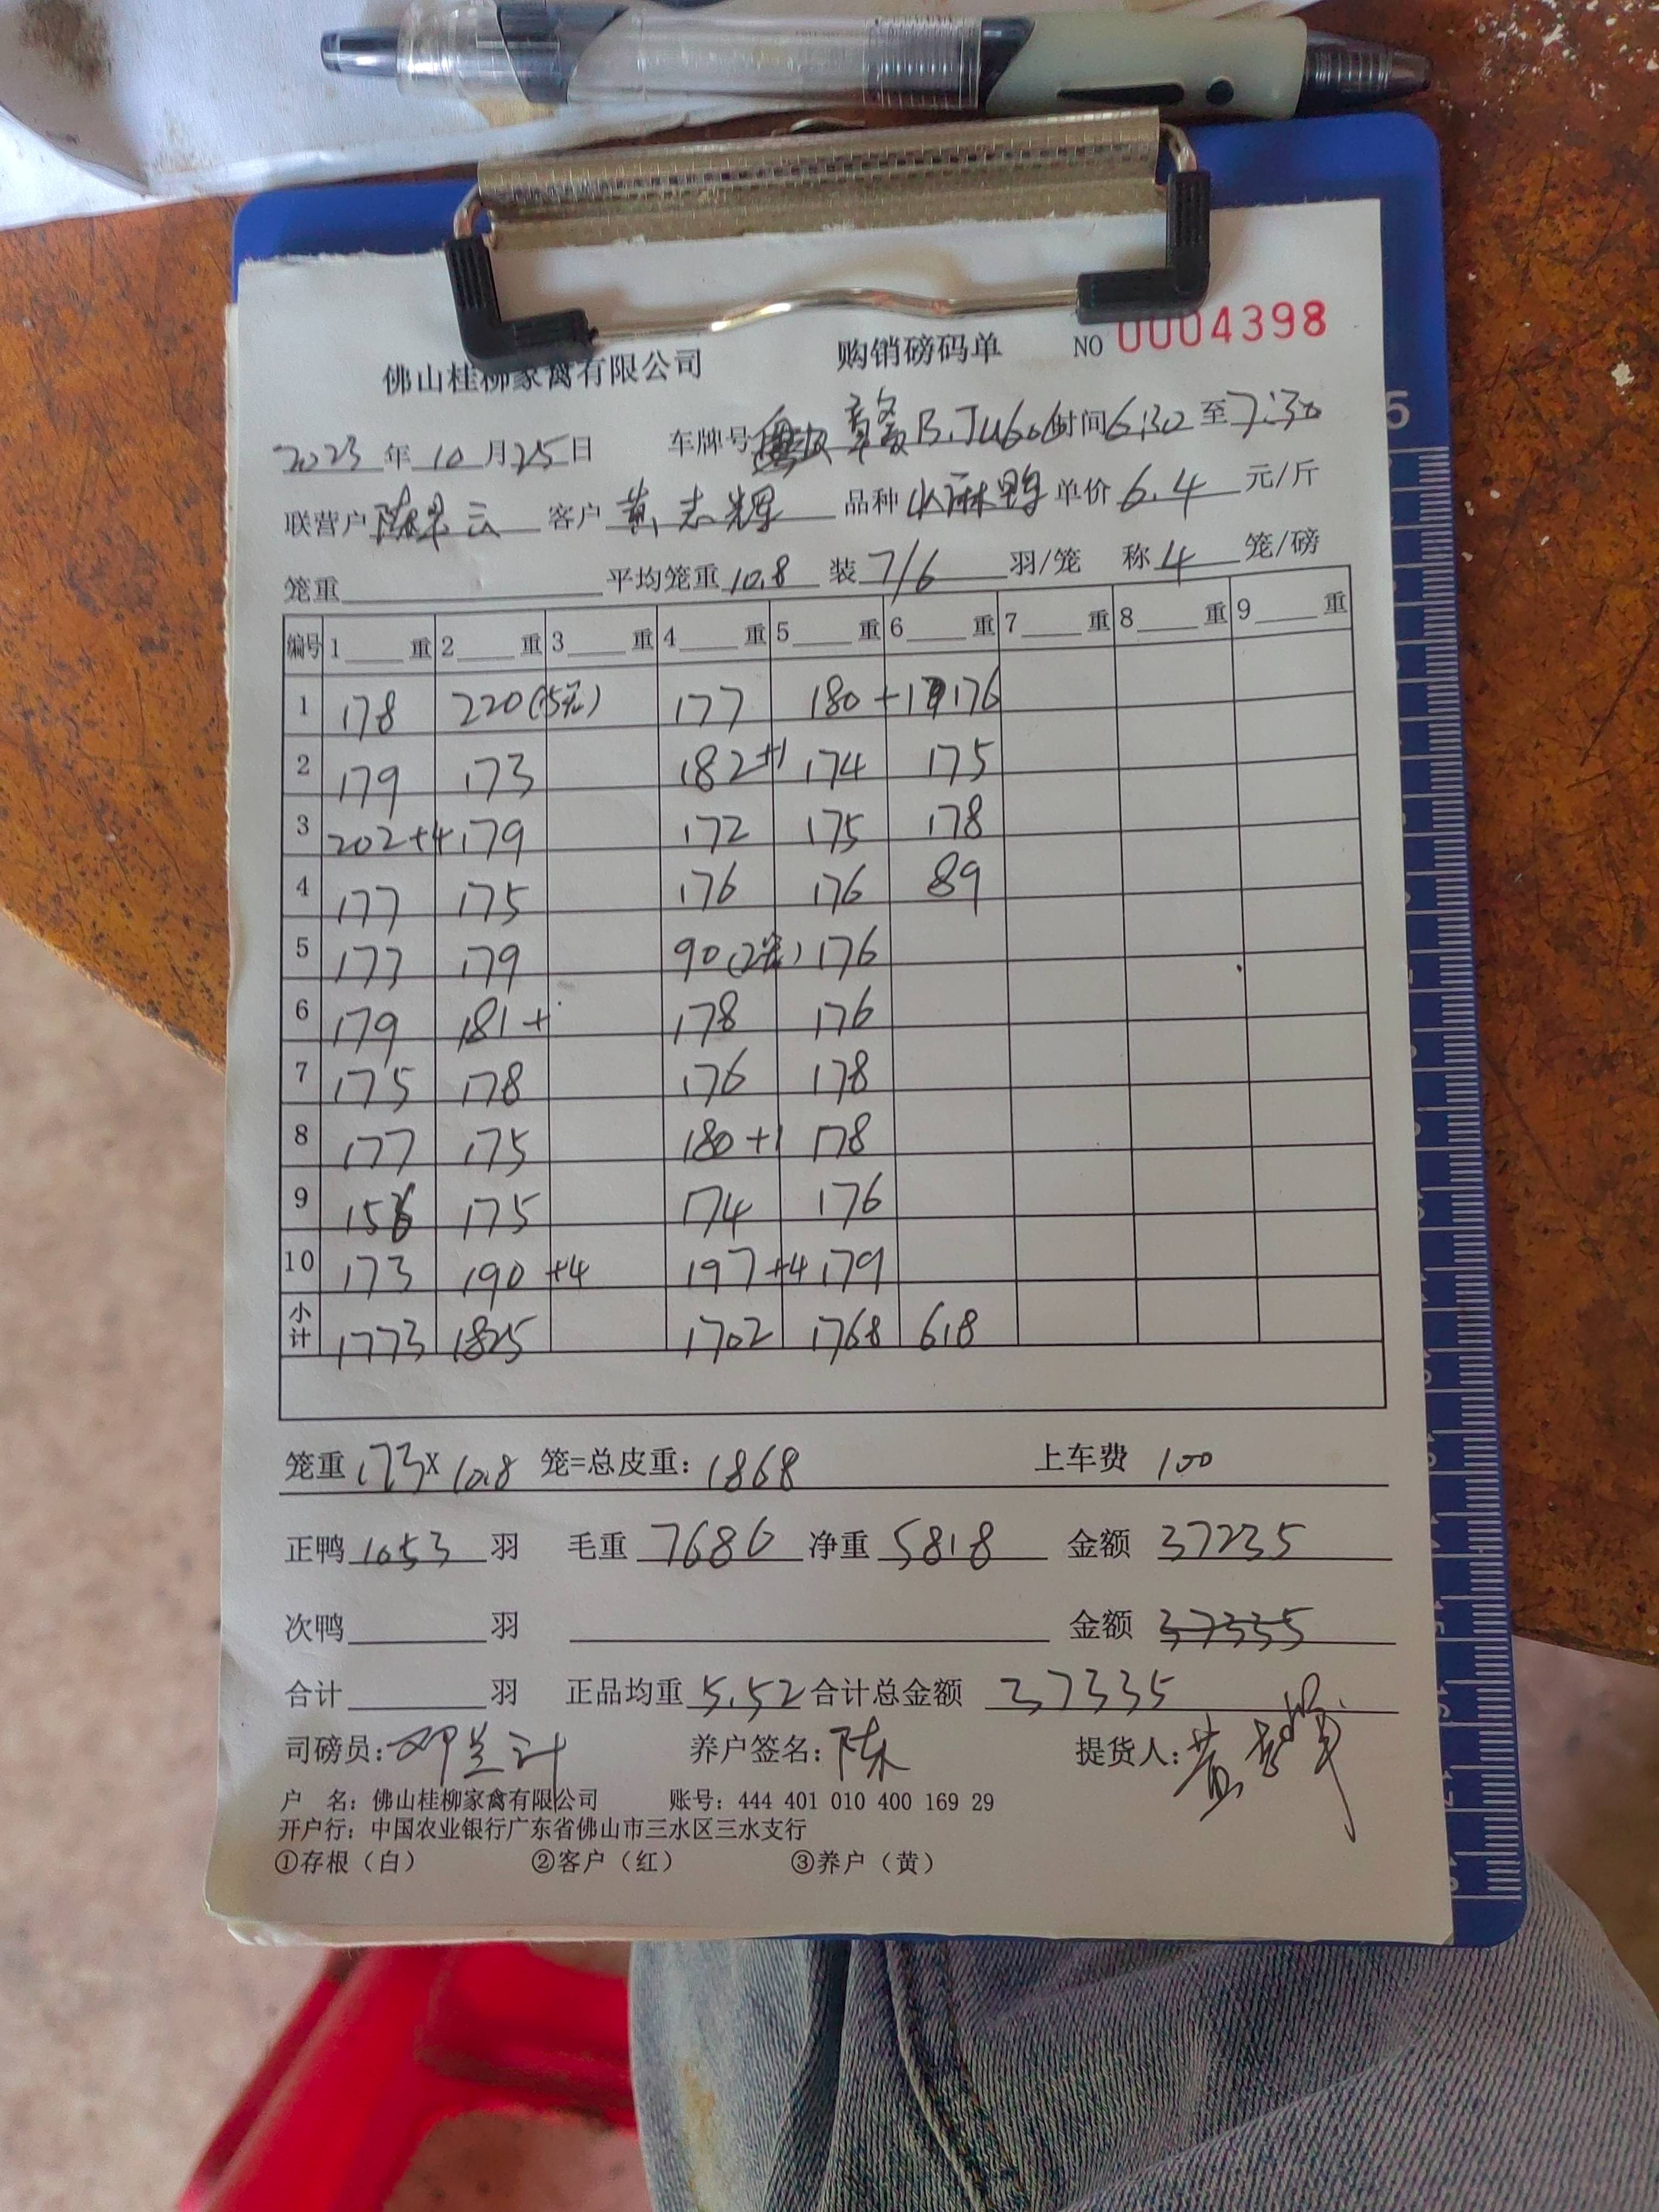 佛山桂柳家禽有限公司 购销磅码单 NO 0004398
2023年10月25日 车牌号 B.JU606 时间6:30至7:30
联营户陈 云 客户黄志辉 品种小麻鸭 单价6.4元/斤
笼重 平均笼重10.8 装7/6羽/笼 称4笼/磅
编号 1 重 2 重 3 重 4 重 5 重 6 重 7 重 8 重 9 重
1 178 220(5笼) 177 180+1 176
2 179 173 182+1 174 175
3 202+4 179 172 175 178
4 177 175 176 176 89
5 177 179 90(2笼) 176
6 179 181+ 178 176
7 175 178 176 178
8 177 175 180+1 178
9 156 175 174 176
10 173 190+4 197+4 179
小计 1773 1825 1702 1768 618
笼重173×10.8笼=总皮重:1868 上车费 100
正鸭1053羽 毛重7686 净重5818 金额 37235
次鸭 羽 金额 37335
合计 羽 正品均重5.52 合计总金额 37335
司磅员:邓兰计 养户签名:陈 提货人:黄志辉
户 名:佛山桂柳家禽有限公司 账号:444 401 010 400 169 29
开户行:中国农业银行广东省佛山市三水区三水支行
①存根(白) ②客户(红) ③养户(黄)